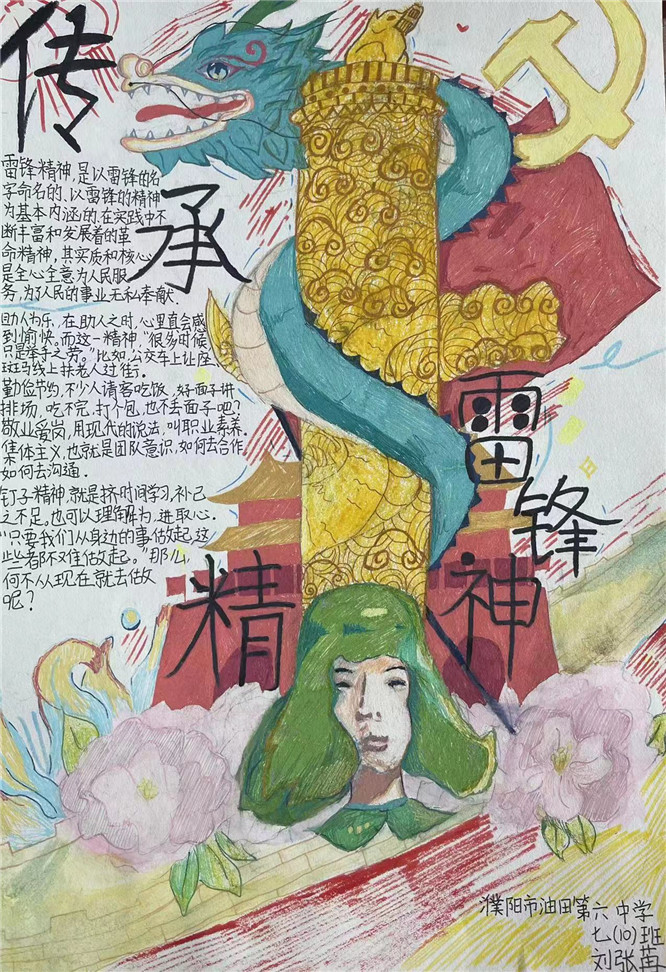 传
承
雷锋精神，是以雷锋的名
字命名的、以雷锋的精神
为基本内涵的、在实践中不
断丰富和发展着的革
命精神，其实质和核心
是全心全意为人民服
务，为了人民的事业无私奉献．
助人为乐，在助人之时，心里直会感
到愉快。而这一精神，“很多时候
只是举手之劳。”比如，公交车上让座、
斑马线上扶老人过街．
勤俭节约，不少人请客吃饭，好面子讲
排场，吃不完，打个包，也不丢面子吧？
敬业爱岗，用现代的说法，叫职业素养．
集体主义，也就是团队意识，如何去合作
如何去沟通．
钉子精神，就是挤时间学习，补己
之不足，也可以理解为，进取心．
“只要我们从身边的事做起，这
些都不难做起。”那么，
何不从现在就去做
呢？
雷
锋
精 神
濮阳市油田第六中学
七(10)班
刘张苒